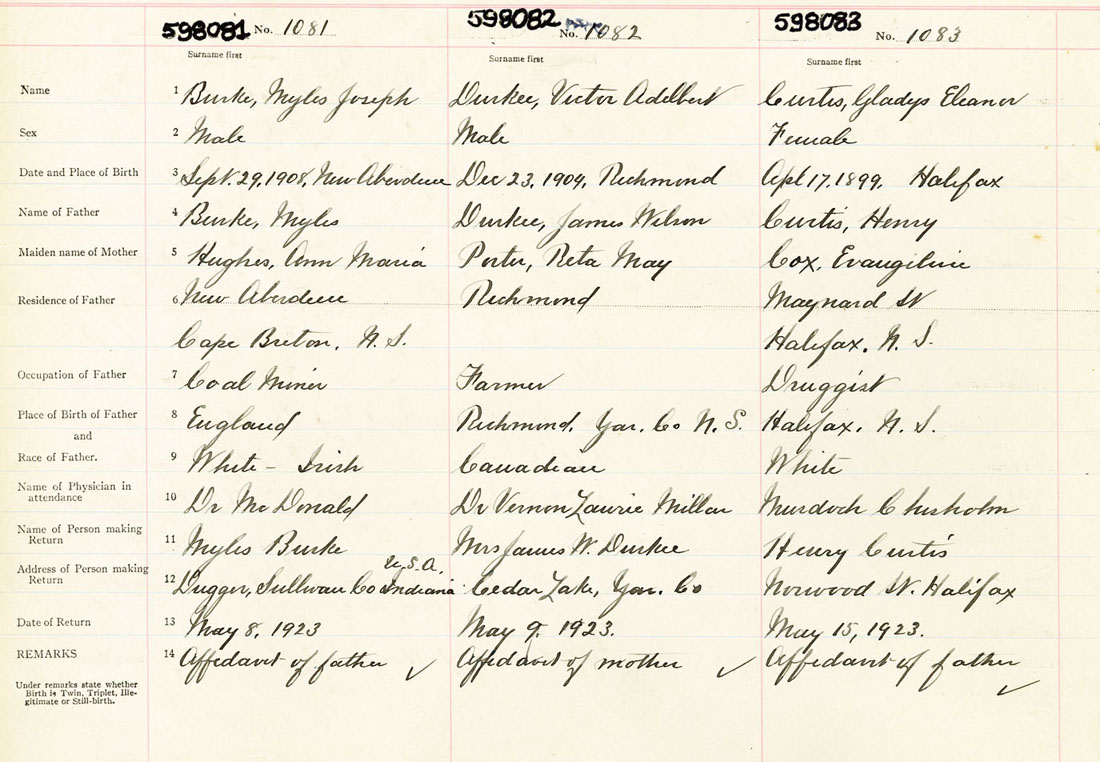 598081 No. 1081 598082 No. 1082 598083 No. 1083
Surname first Surname first Surname first
Name 1 Burke, Myles Joseph Durkee, Victor Adelbert Curtis, Gladys Eleanor
Sex 2 Male Male Female
Date and Place of Birth 3 Sept. 29, 1908, New Aberdeen Dec 23, 1904, Richmond Apl 17, 1899, Halifax
Name of Father 4 Burke, Myles Durkee, James Wilson Curtis, Henry
Maiden name of Mother 5 Hughes, Ann Maria Porter, Reta May Cox, Evangiline
Residence of Father 6 New Aberdeen Richmond Maynard St
Cape Breton, N. S. Halifax, N. S.
Occupation of Father 7 Coal Miner Farmer Druggist
Place of Birth of Father 8 England Richmond, Yar. Co N. S. Halifax, N. S.
and
Race of Father. 9 White - Irish Canadian White
Name of Physician in
attendance 10 Dr McDonald Dr Vernon Laurie Millar Murdoch Chisholm
Name of Person making
Return 11 Myles Burke Mrs James W. Durkee Henry Curtis
U.S.A,
Address of Person making
Return 12 Dugger, Sullivan Co Indiana Cedar Lake, Yar. Co Norwood St. Halifax
Date of Return 13 May 8, 1923 May 9, 1923. May 15, 1923.
REMARKS 14 Affedavit of father ✓ Affedavit of mother ✓ Affedavit of father ✓
Under remarks state whether
Birth is Twin, Triplet, Ille-
gitimate or Still-birth.